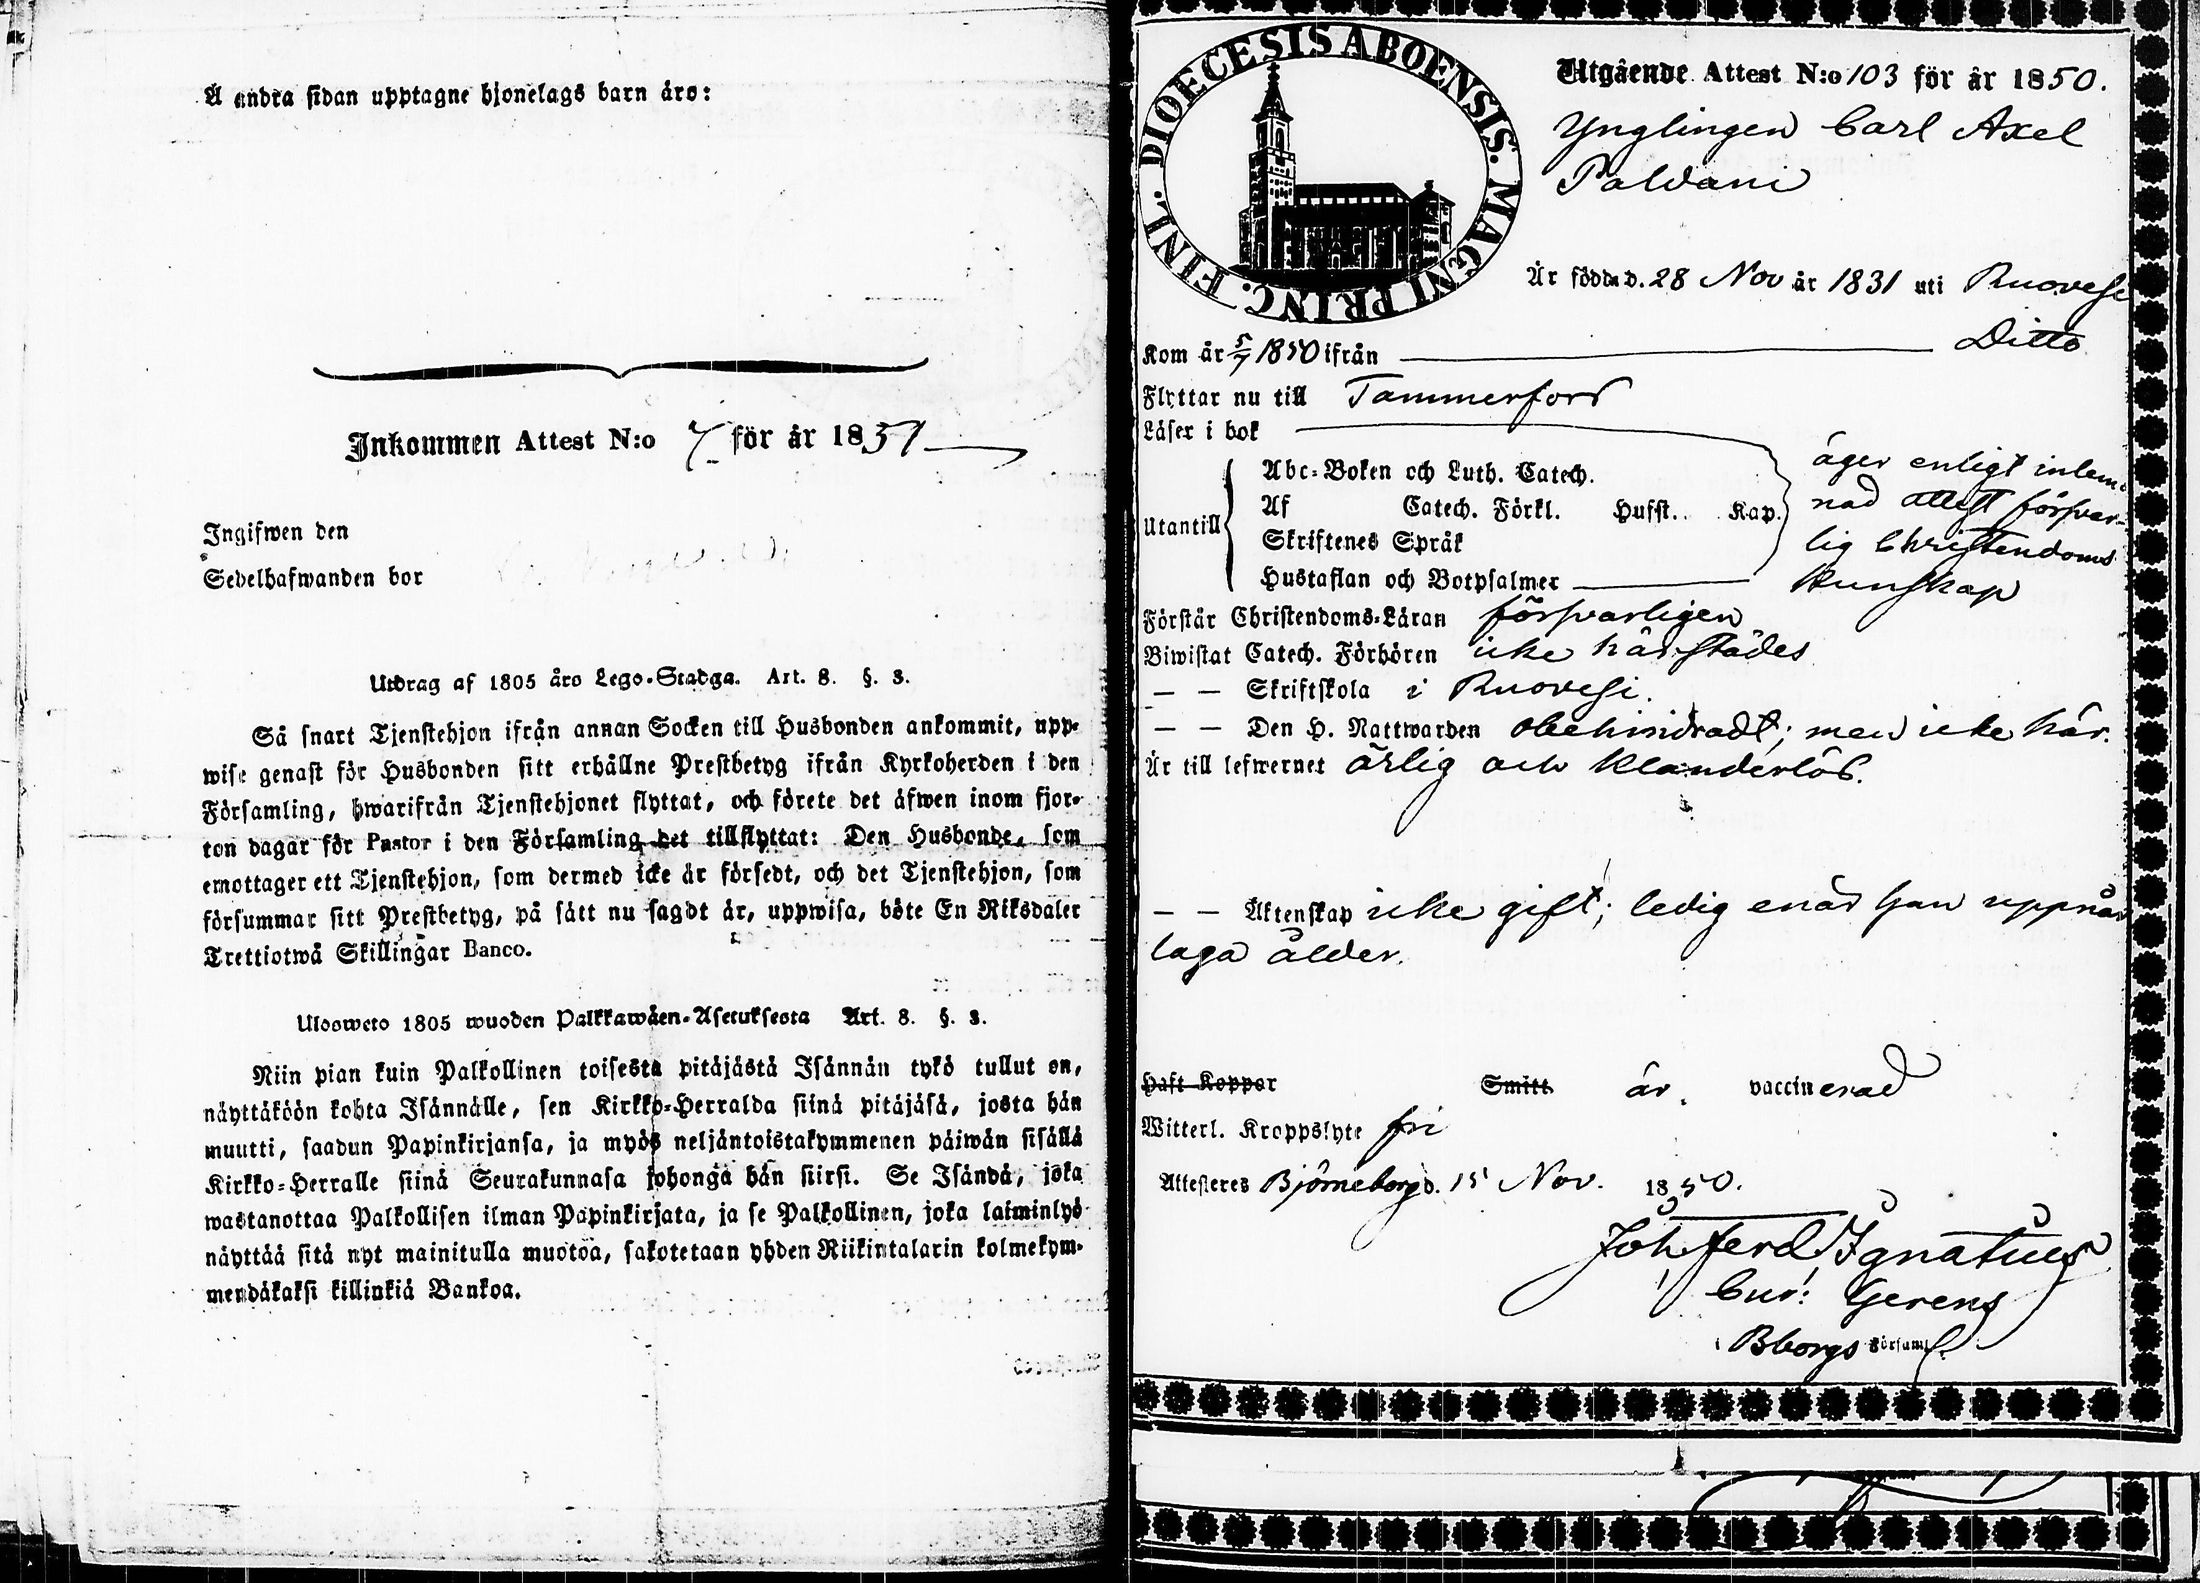 Å andra sidan upptagne hjonelags barn äro:
Inkommen Attest N:o 7 för år 1851
Ingifwen den
Sedelhafwanden bor
Utdrag af 1805 års Lego-Stadga. Art. 8. §. 3.
Så snart Tjenstehjon ifrån annan Socken till Husbonden ankommit, upp-
wise genast för Husbonden sitt erhållne Prestbetyg ifrån Kyrkoherden i den
Församling, hwarifrån Tjenstehjonet flyttat, och förete det äfwen inom fjor-
ton dagar för Pastor i den Församling det tillflyttat: Den Husbonde, som
emottager ett Tjenstehjon, som dermed icke är försedt, och det Tjenstehjon, som
försummar sitt Prestbetyg, på sätt nu sagdt är, uppwisa, böte En Riksdaler
Trettiotwå Skillingar Banco.
Ulosweto 1805 wuoden Palkkawäen-Asetuksesta Art. 8. §. 3.
Niin pian kuin Palkollinen toisesta pitäjästä Isännän tykö tullut on,
näyttäköön kohta Isännälle, sen Kirkko-Herralda siinä pitäjäsä, josta hän
muutti, saadun Papinkirjansa, ja myös neljäntoistakymmenen päiwän sisällä
Kirkko-Herralle siinä Seurakunnasa johonga hän siirsi. Se Isändä, joka
wastanottaa Palkollisen ilman Papinkirjata, ja se Palkollinen, joka laiminlyö
näyttää sitä nyt mainitulla muotoa, sakotetaan yhden Riikintalarin kolmekym-
mendäkaksi killinkiä Bankoa.
FINL. DIOECESIS ABOENSIS. MAGNI PRINC.
Utgående Attest N:o 103 för år 1850.
Ynglingen Carl Axel
Paldani
Är född d. 28 Nov år 1831 uti Ruovesi
Kom år 5/7 1850 ifrån Ditto
Flyttar nu till Tammerfors
Läser i bok
Utantill
Abc-Boken och Luth. Catech.
Af Catech. Förkl. Hufst. Kap.
Skriftenes Språk
Hustaflan och Botpsalmer
äger enligt inlem-
nad attest försvar-
lig Christendoms
kunskap
Förstår Christendoms-Läran försvarligen
Biwistat Catech. Förhören icke härstädes
— — Skriftskola i Ruovesi.
— — Den H. Nattwarden obehindradt; men icke här.
Är till lefwernet ärlig och klanderlös.
— — Äktenskap icke gift; ledig enär han uppnår
laga ålder.
Haft Koppor Smitt är vaccinerad
Witterl. Kroppslyte fri
Attesteres Björneborg d. 15 Nov. 1850.
Joh. Ferd. Ignatius
Cur. Gerens
i Bborgs Församl.